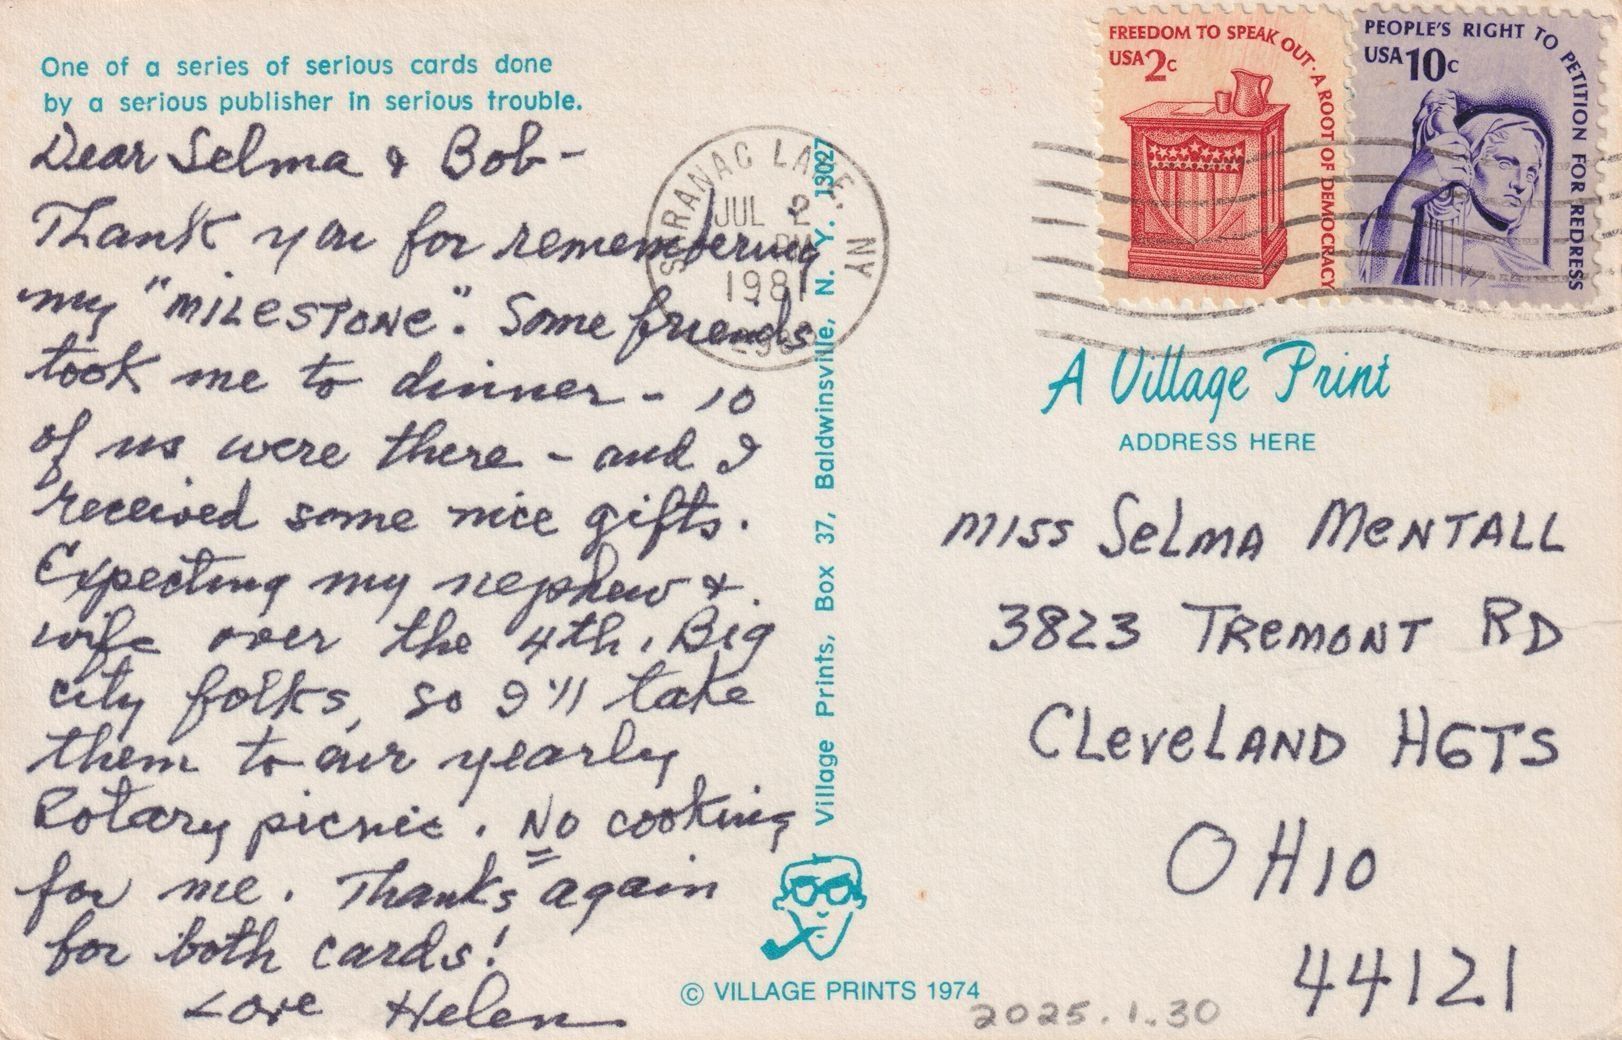 One of a series of serious cards done
by a serious publisher in serious trouble.
Dear Selma & Bob -
Thank you for remembering
my "MILESTONE". Some friends
took me to dinner - 10
of us were there - and I
received some nice gifts.
Expecting my nephew &
wife over the 4th. Big
city folks, so I'll take
them to our yearly
Rotary picnic. No cooking
for me. Thanks again
for both cards!
Love Helen
SARANAC LAKE, NY
JUL 2
PM
1981
Village Prints, Box 37, Baldwinsville, N. Y. 13027
© VILLAGE PRINTS 1974
FREEDOM TO SPEAK OUT · A ROOT OF DEMOCRACY
USA 2c
PEOPLE'S RIGHT TO PETITION FOR REDRESS
USA 10c
A Village Print
ADDRESS HERE
MISS SELMA MENTALL
3823 TREMONT RD
CLEVELAND HGTS
OHIO
44121
2025.1.30